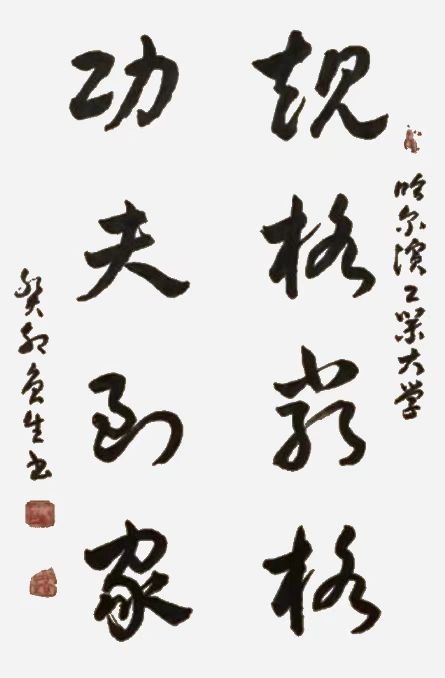 哈尔滨工业大学
规格严格
功夫到家
癸卯魚生书